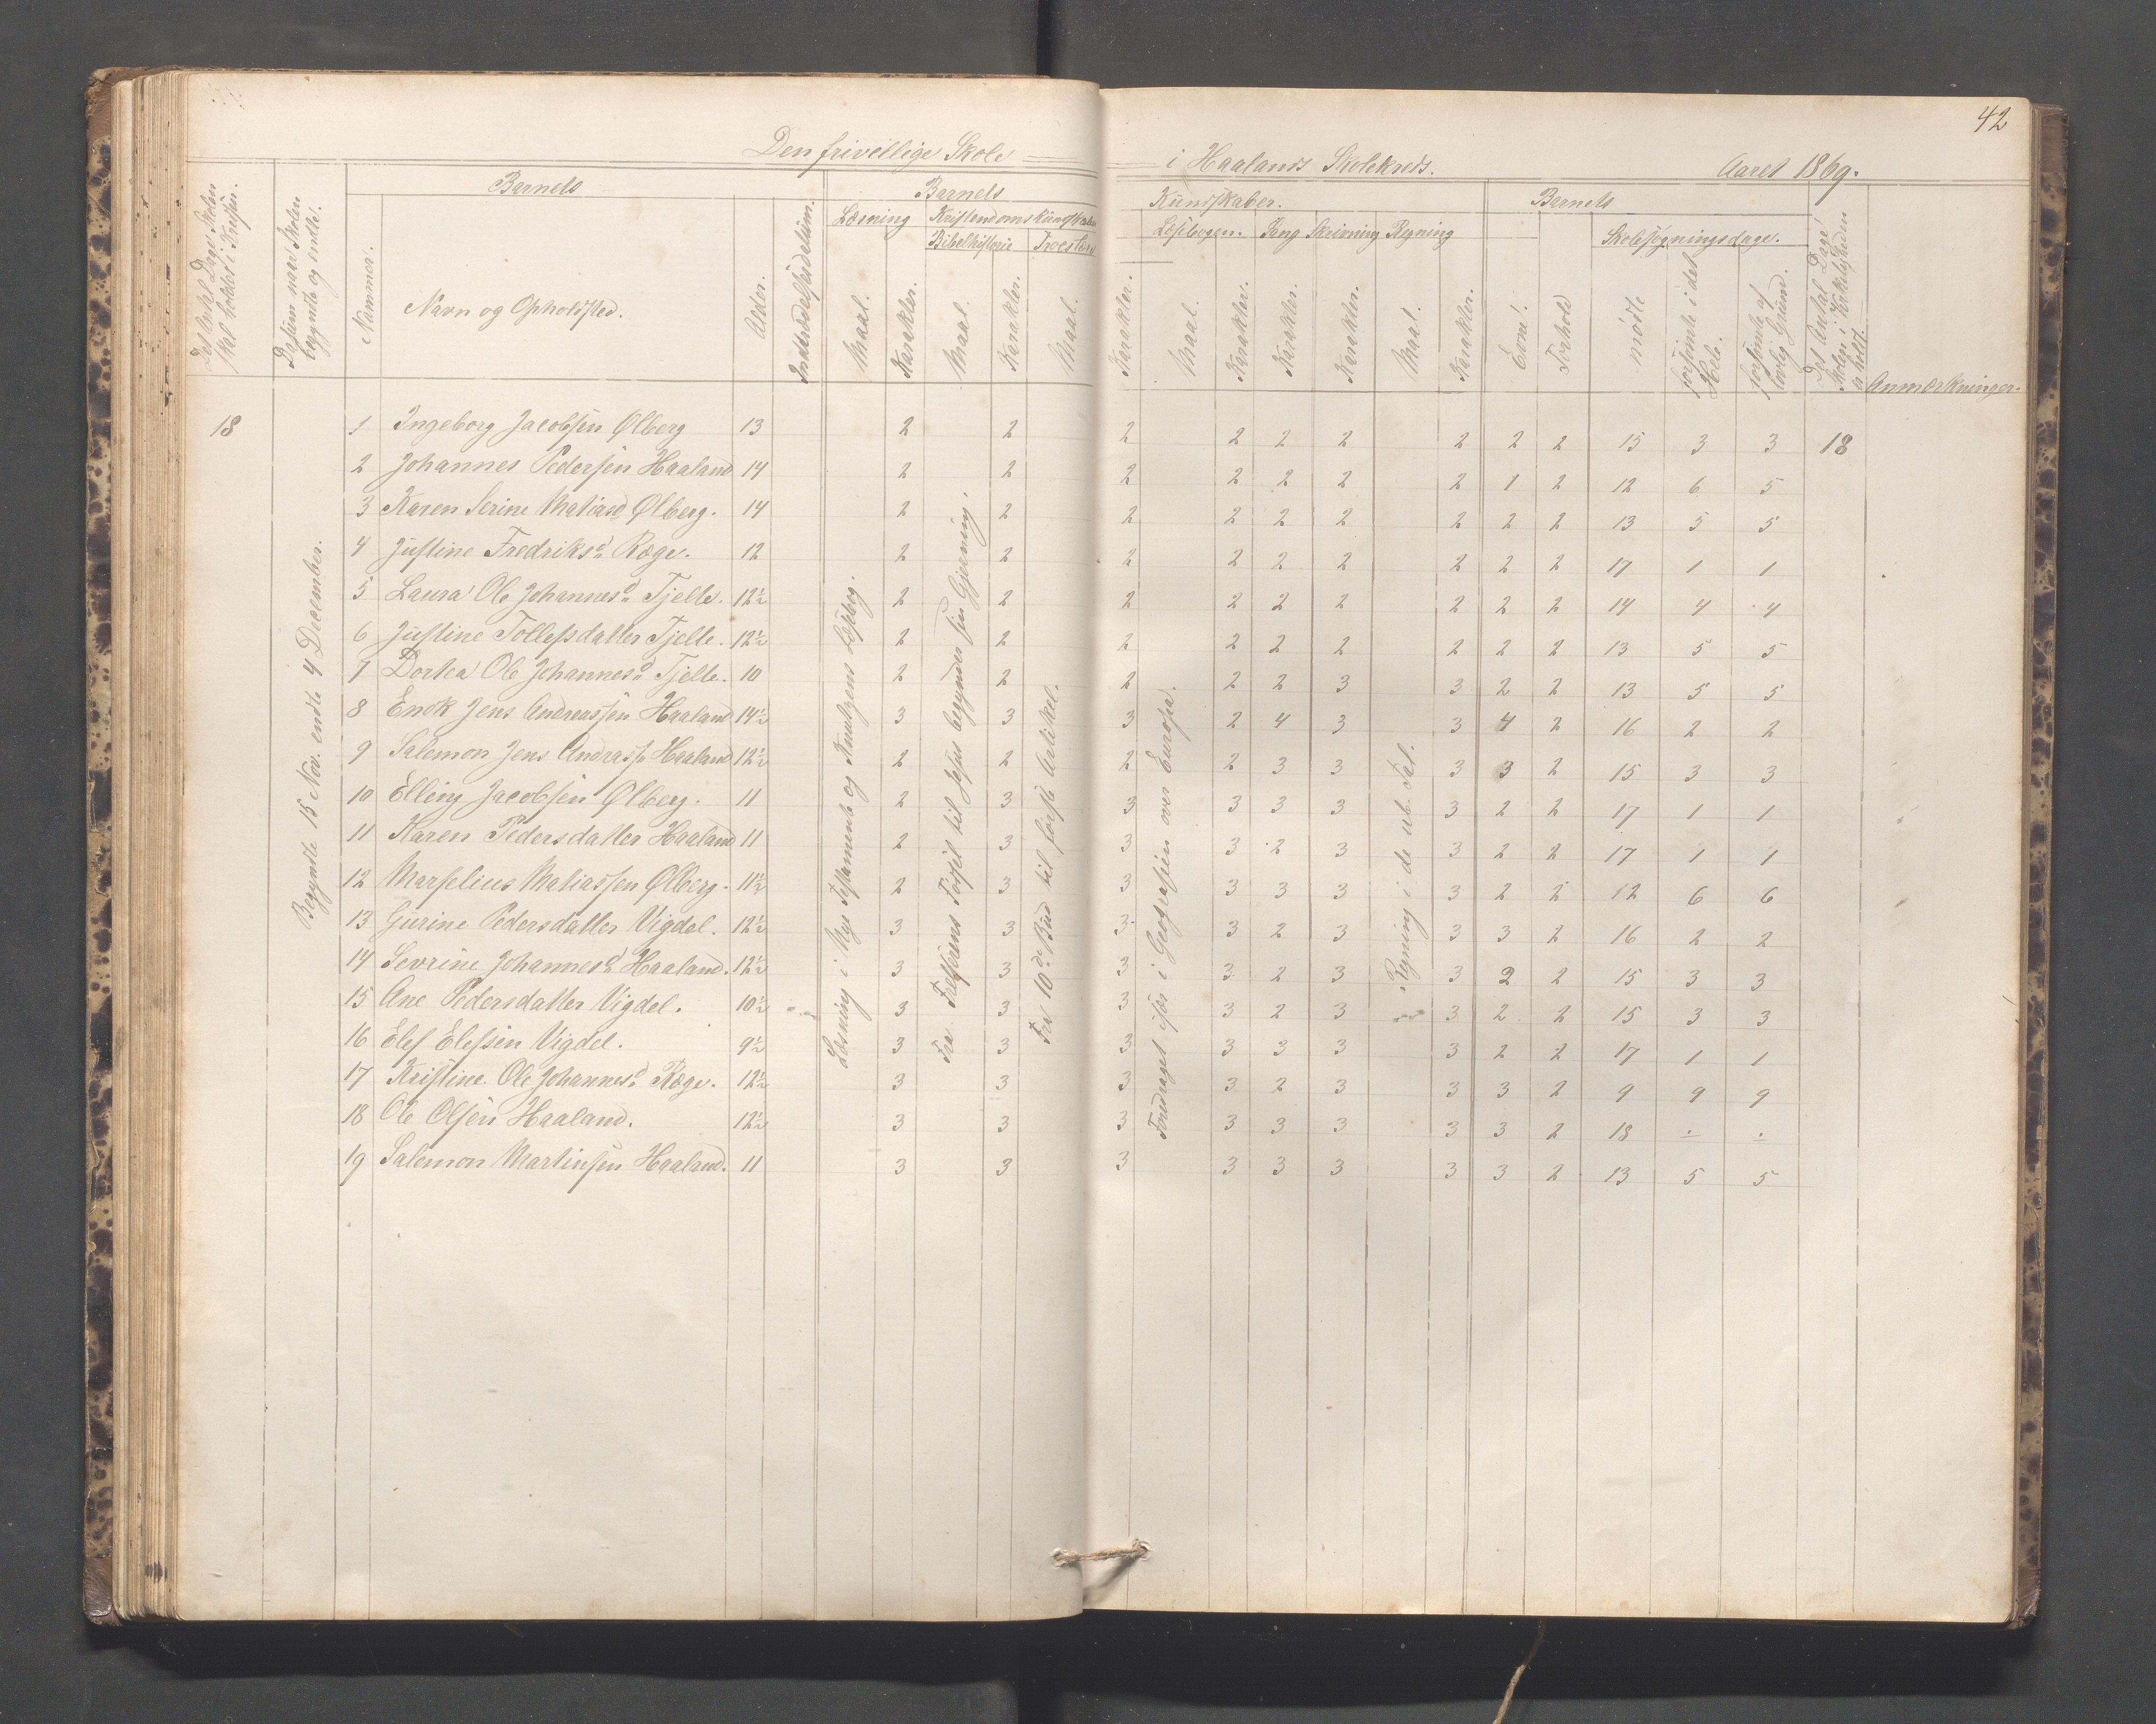 42
Den frivillige Skole i Haalands Skolekreds. Aaret 1869.
Det Antal Dage Skolen skal holdes i Kredsen.
Datum naar Skolen begyndte og endte.
Barnets
Nummer.
Navn og Opholdsted.
Alder.
Indtrædelsesdatum.
Barnets Kundskaber.
Læsning Kristendomskundskab
Bibelhistorie Troeslære
Læsebogen. Sang Skrivning Regning
Maal. Karakter. Maal. Karakter. Maal. Karakter. Maal. Karakter. Karakter. Karakter. Maal. Karakter.
Barnets
Evne. Forhold
Skolesøgningsdage.
mødte
forsømte i det Hele.
forsømte af lovlig Grund.
Det Antal Dage Skolen i Virkeligheden er holdt.
Anmærkninger.
18
Begyndte 15 Nov. endte 4 December.
Læsning i Nye Testamente og Knudsens Læsebog.
Fra Frelserens Fødsel til Jesus begynder sin Gjerning.
Fra 10de Bud til første Artikel.
Foredraget især i Geografien over Europa.
Regning i de ub. Tal.
1 Ingeborg Jacobsen Ølberg 13 2 2 2 2 2 2 2 2 2 15 3 3 18
2 Johannes Pedersen Haaland 14 2 2 2 2 2 2 2 1 2 12 6 5
3 Karen Serine Matiasd Ølberg. 14 2 2 2 2 2 2 2 2 2 13 5 5
4 Justine Fredriksd Ræge. 12 2 2 2 2 2 2 2 2 2 17 1 1
5 Laura Ole Johannesd Tjelle. 12½ 2 2 2 2 2 2 2 2 2 14 4 4
6 Justine Tollefsdatter Tjelle. 12½ 2 2 2 2 2 2 2 2 2 13 5 5
7 Dortea Ole Johannesd Tjelle. 10 2 2 2 2 2 3 3 2 2 13 5 5
8 Enok Jens Andreassen Haaland 14½ 3 3 3 2 4 3 3 4 2 16 2 2
9 Salemon Jens Andrass Haaland 12½ 2 2 2 2 3 3 3 3 2 15 3 3
10 Elling Jacobsen Ølberg. 11 2 3 3 3 3 3 3 2 2 17 1 1
11 Karen Pedersdatter Haaland 11 2 3 3 3 2 3 3 2 2 17 1 1
12 Marselius Matiassen Ølberg. 11½ 2 3 3 3 3 3 3 2 2 12 6 6
13 Gurine Pedersdatter Vigdel. 12½ 3 3 3 3 2 3 3 3 2 16 2 2
14 Sevrine Johannesd Haaland. 12½ 3 3 3 3 2 3 3 2 2 15 3 3
15 Ane Pedersdatter Vigdel. 10½ 3 3 3 3 2 3 3 2 2 15 3 3
16 Elef Elefsen Vigdel. 9½ 3 3 3 3 3 3 3 2 2 17 1 1
17 Kristine Ole Johannesd Ræge. 12½ 3 3 3 3 2 3 3 3 2 9 9 9
18 Ole Olsen Haaland. 12½ 3 3 3 3 3 3 3 3 2 18 ÷ ÷
19 Salemon Martinsen Haaland. 11 3 3 3 3 3 3 3 3 2 13 5 5